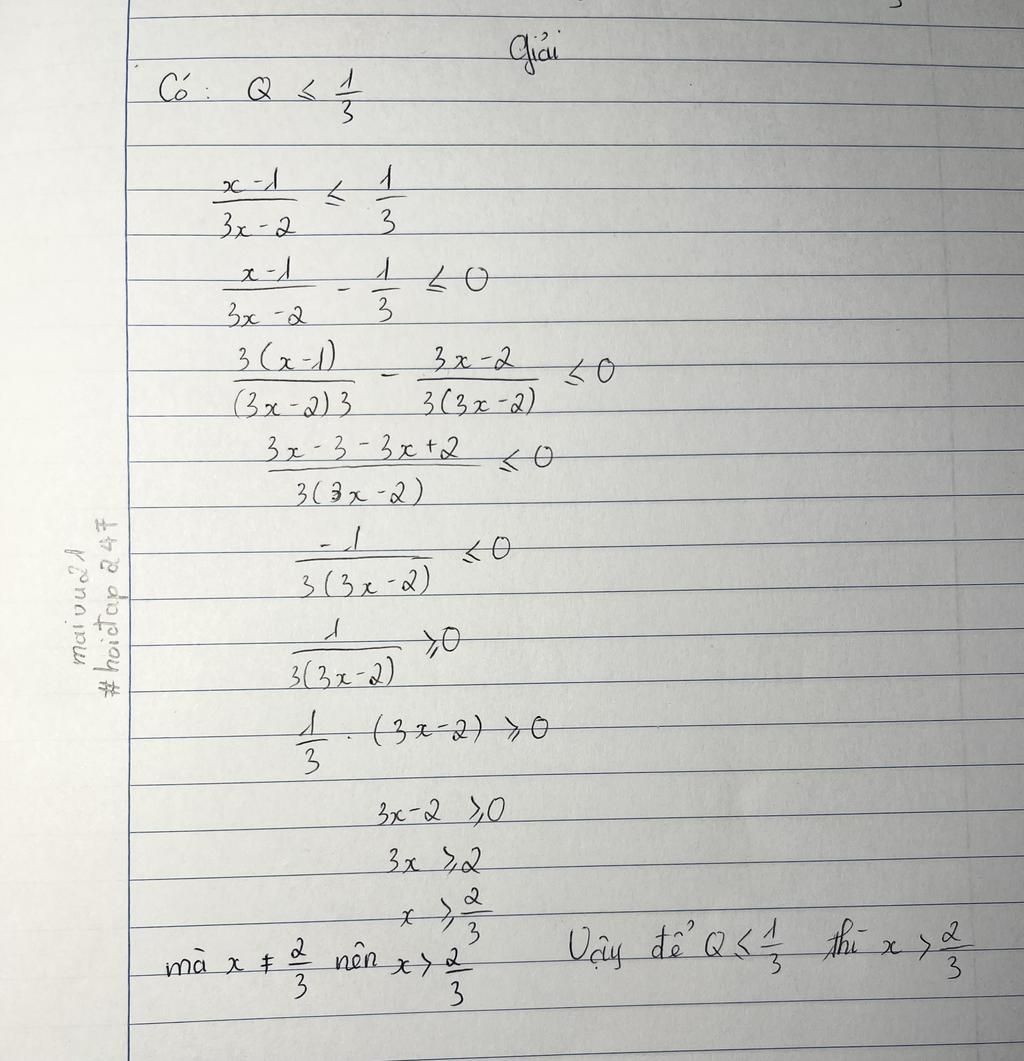 Giải
Có: Q ≤ 1/3
(x-1)/(3x-2) ≤ 1/3
(x-1)/(3x-2) - 1/3 ≤ 0
3(x-1)/((3x-2)3) - (3x-2)/(3(3x-2)) ≤ 0
(3x-3-3x+2)/(3(3x-2)) ≤ 0
-1/(3(3x-2)) ≤ 0
1/(3(3x-2)) ≥ 0
1/3 . (3x-2) ≥ 0
3x-2 ≥ 0
3x ≥ 2
x ≥ 2/3
mà x ≠ 2/3 nên x > 2/3
Vậy để Q ≤ 1/3 thì x > 2/3
maivu21
#hoidap247